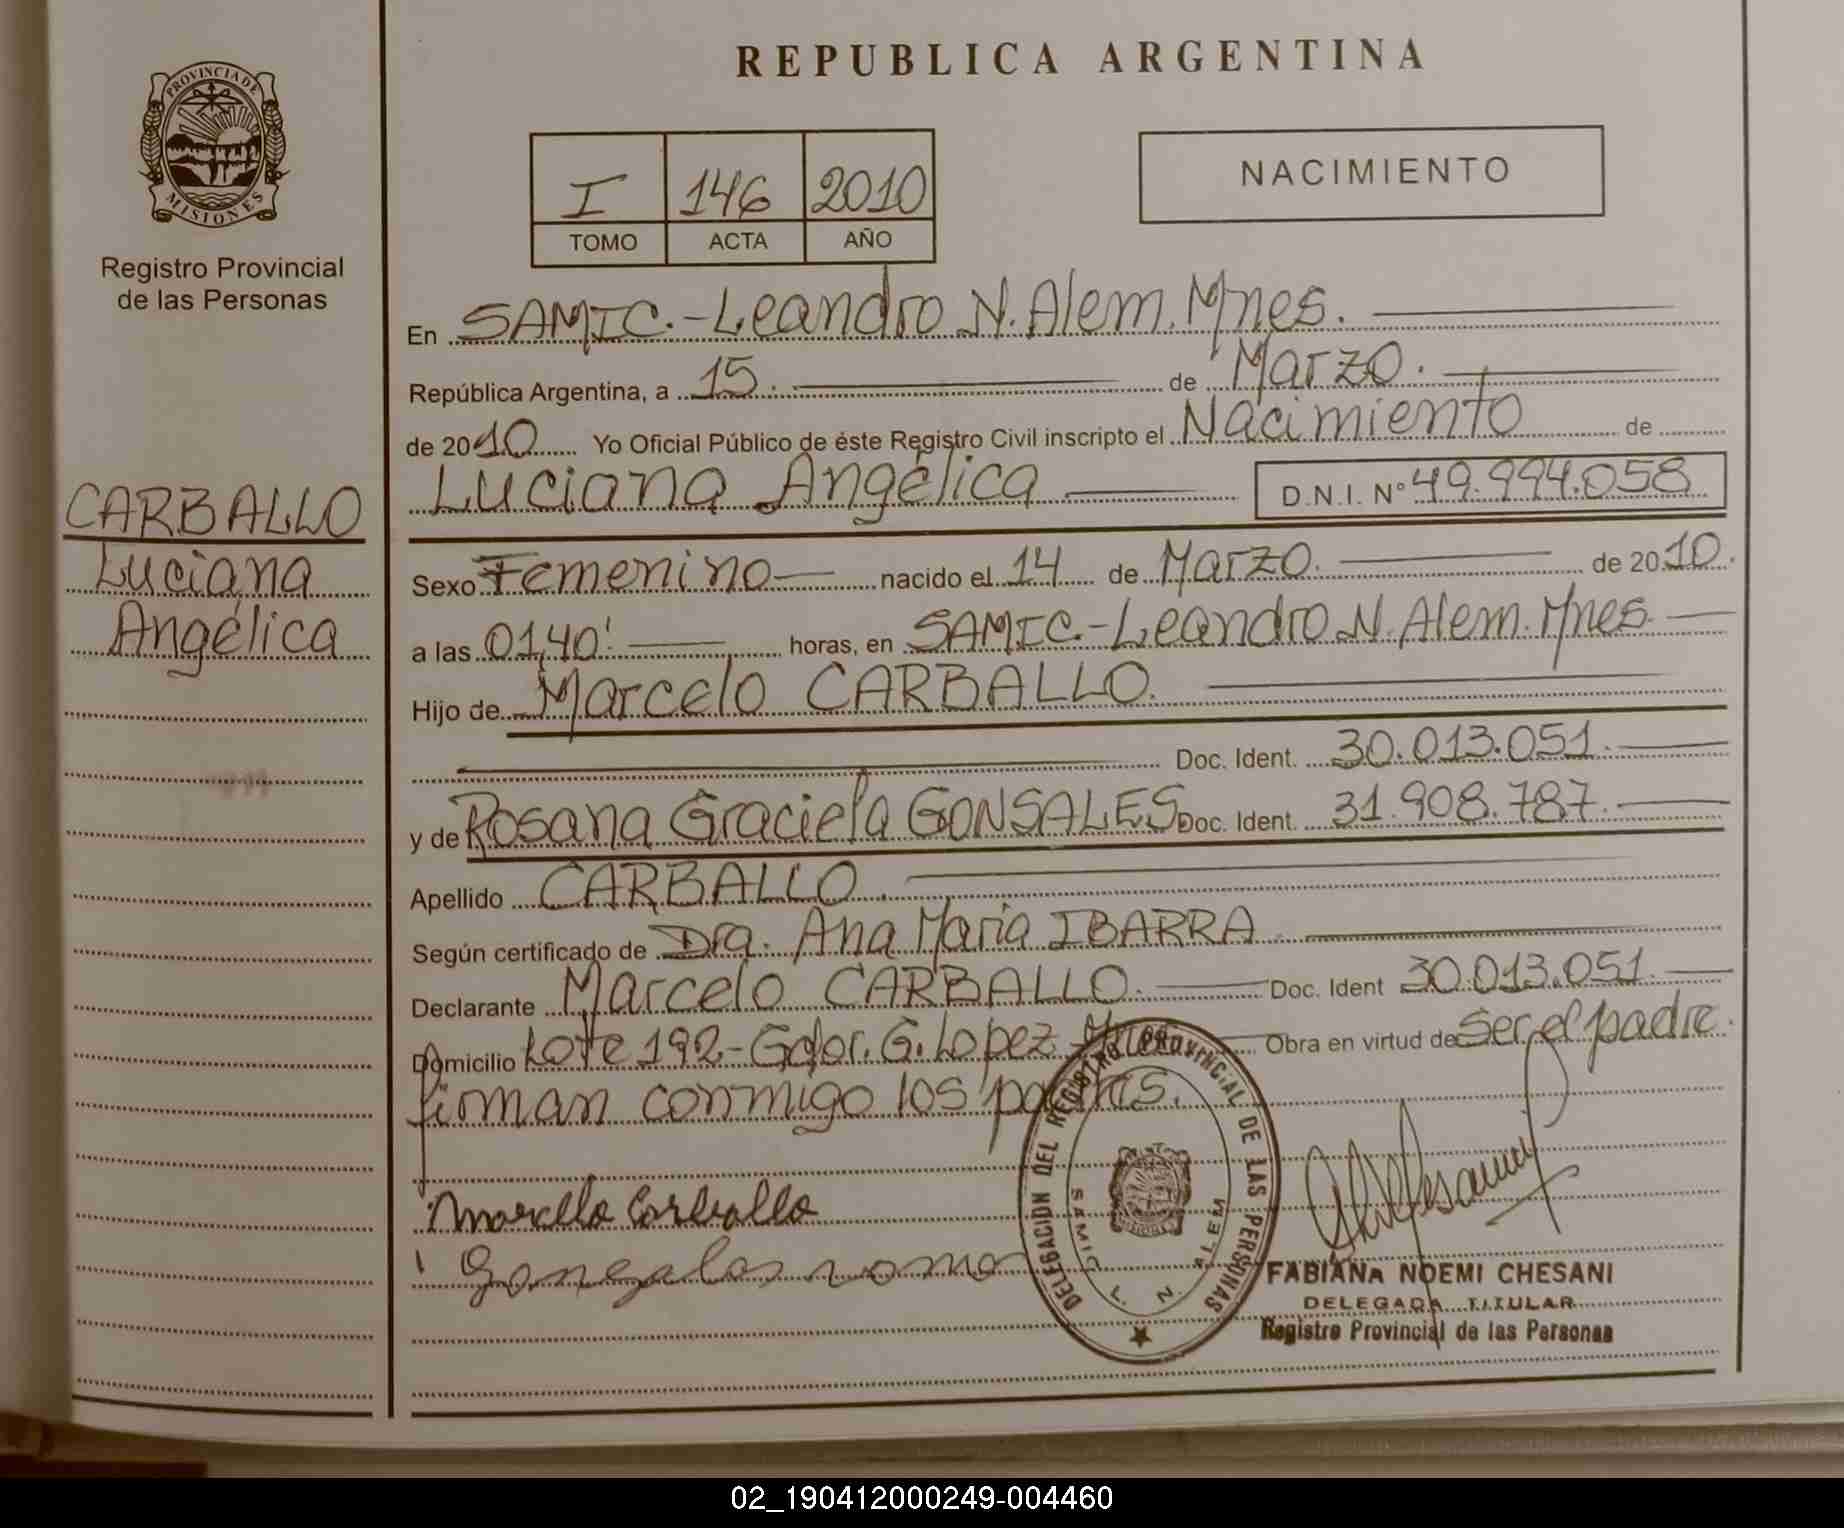 REPUBLICA ARGENTINA
PROVINCIA DE MISIONES
Registro Provincial
de las Personas
I 146 2010
TOMO ACTA AÑO
NACIMIENTO
CARBALLO
Luciana
Angélica
En SAMIC.-Leandro N. Alem. Mnes.
República Argentina, a 15. de Marzo.
de 2010 Yo Oficial Público de éste Registro Civil inscripto el Nacimiento de
Luciana Angélica D.N.I. Nº 49.994.058
Sexo Femenino nacido el 14 de Marzo. de 2010.
a las 01,40' horas, en SAMIC.-Leandro N. Alem. Mnes.
Hijo de Marcelo CARBALLO.
Doc. Ident. 30.013.051.
y de Rosana Graciela GONSALES Doc. Ident. 31.908.787.
Apellido CARBALLO.
Según certificado de Dra. Ana Maria IBARRA
Declarante Marcelo CARBALLO. Doc. Ident 30.013.051.
Domicilio Lote 192-Gdor. G. Lopez Mnes Obra en virtud de Ser el padre.
firman conmigo los padres.
Marcello Carballo
DELEGACION DEL REGISTRO PROVINCIAL DE LAS PERSONAS
SAMIC L. N. ALEM
FABIANA NOEMI CHESANI
DELEGADA TITULAR
Registro Provincial de las Personas
02_190412000249-004460